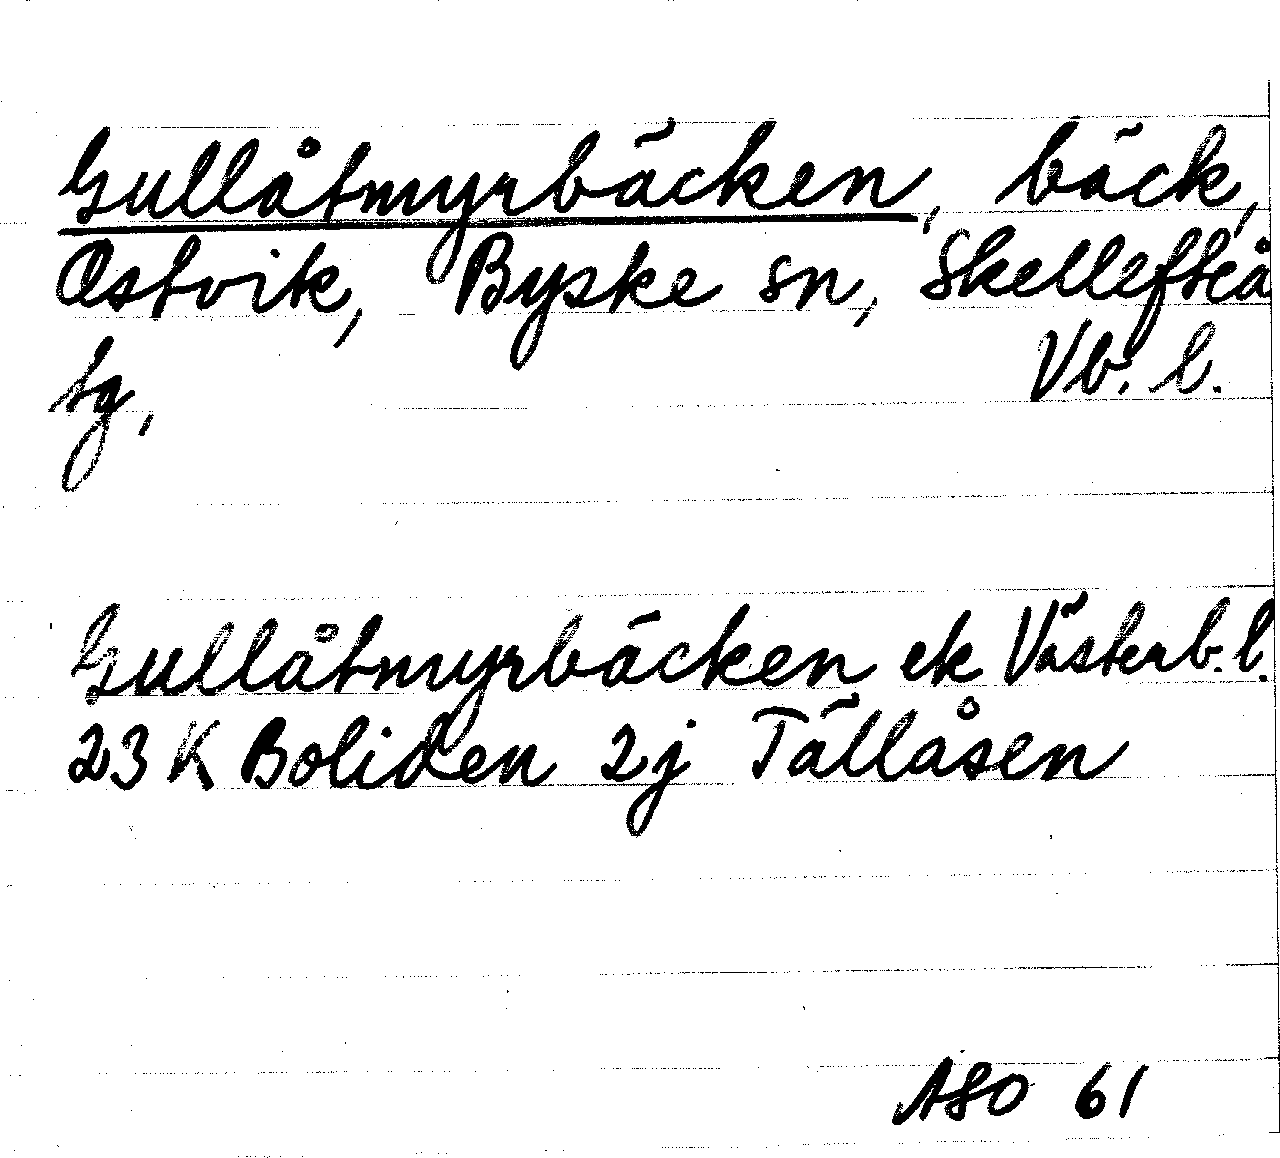 Gullåtmyrbäcken, bäck,
Ostvik, Byske sn, Skellefteå
tg, Vb. l.
Gullåtmyrbäcken ek Västerb. l.
23 K Boliden 2j Tällåsen
ASO 61